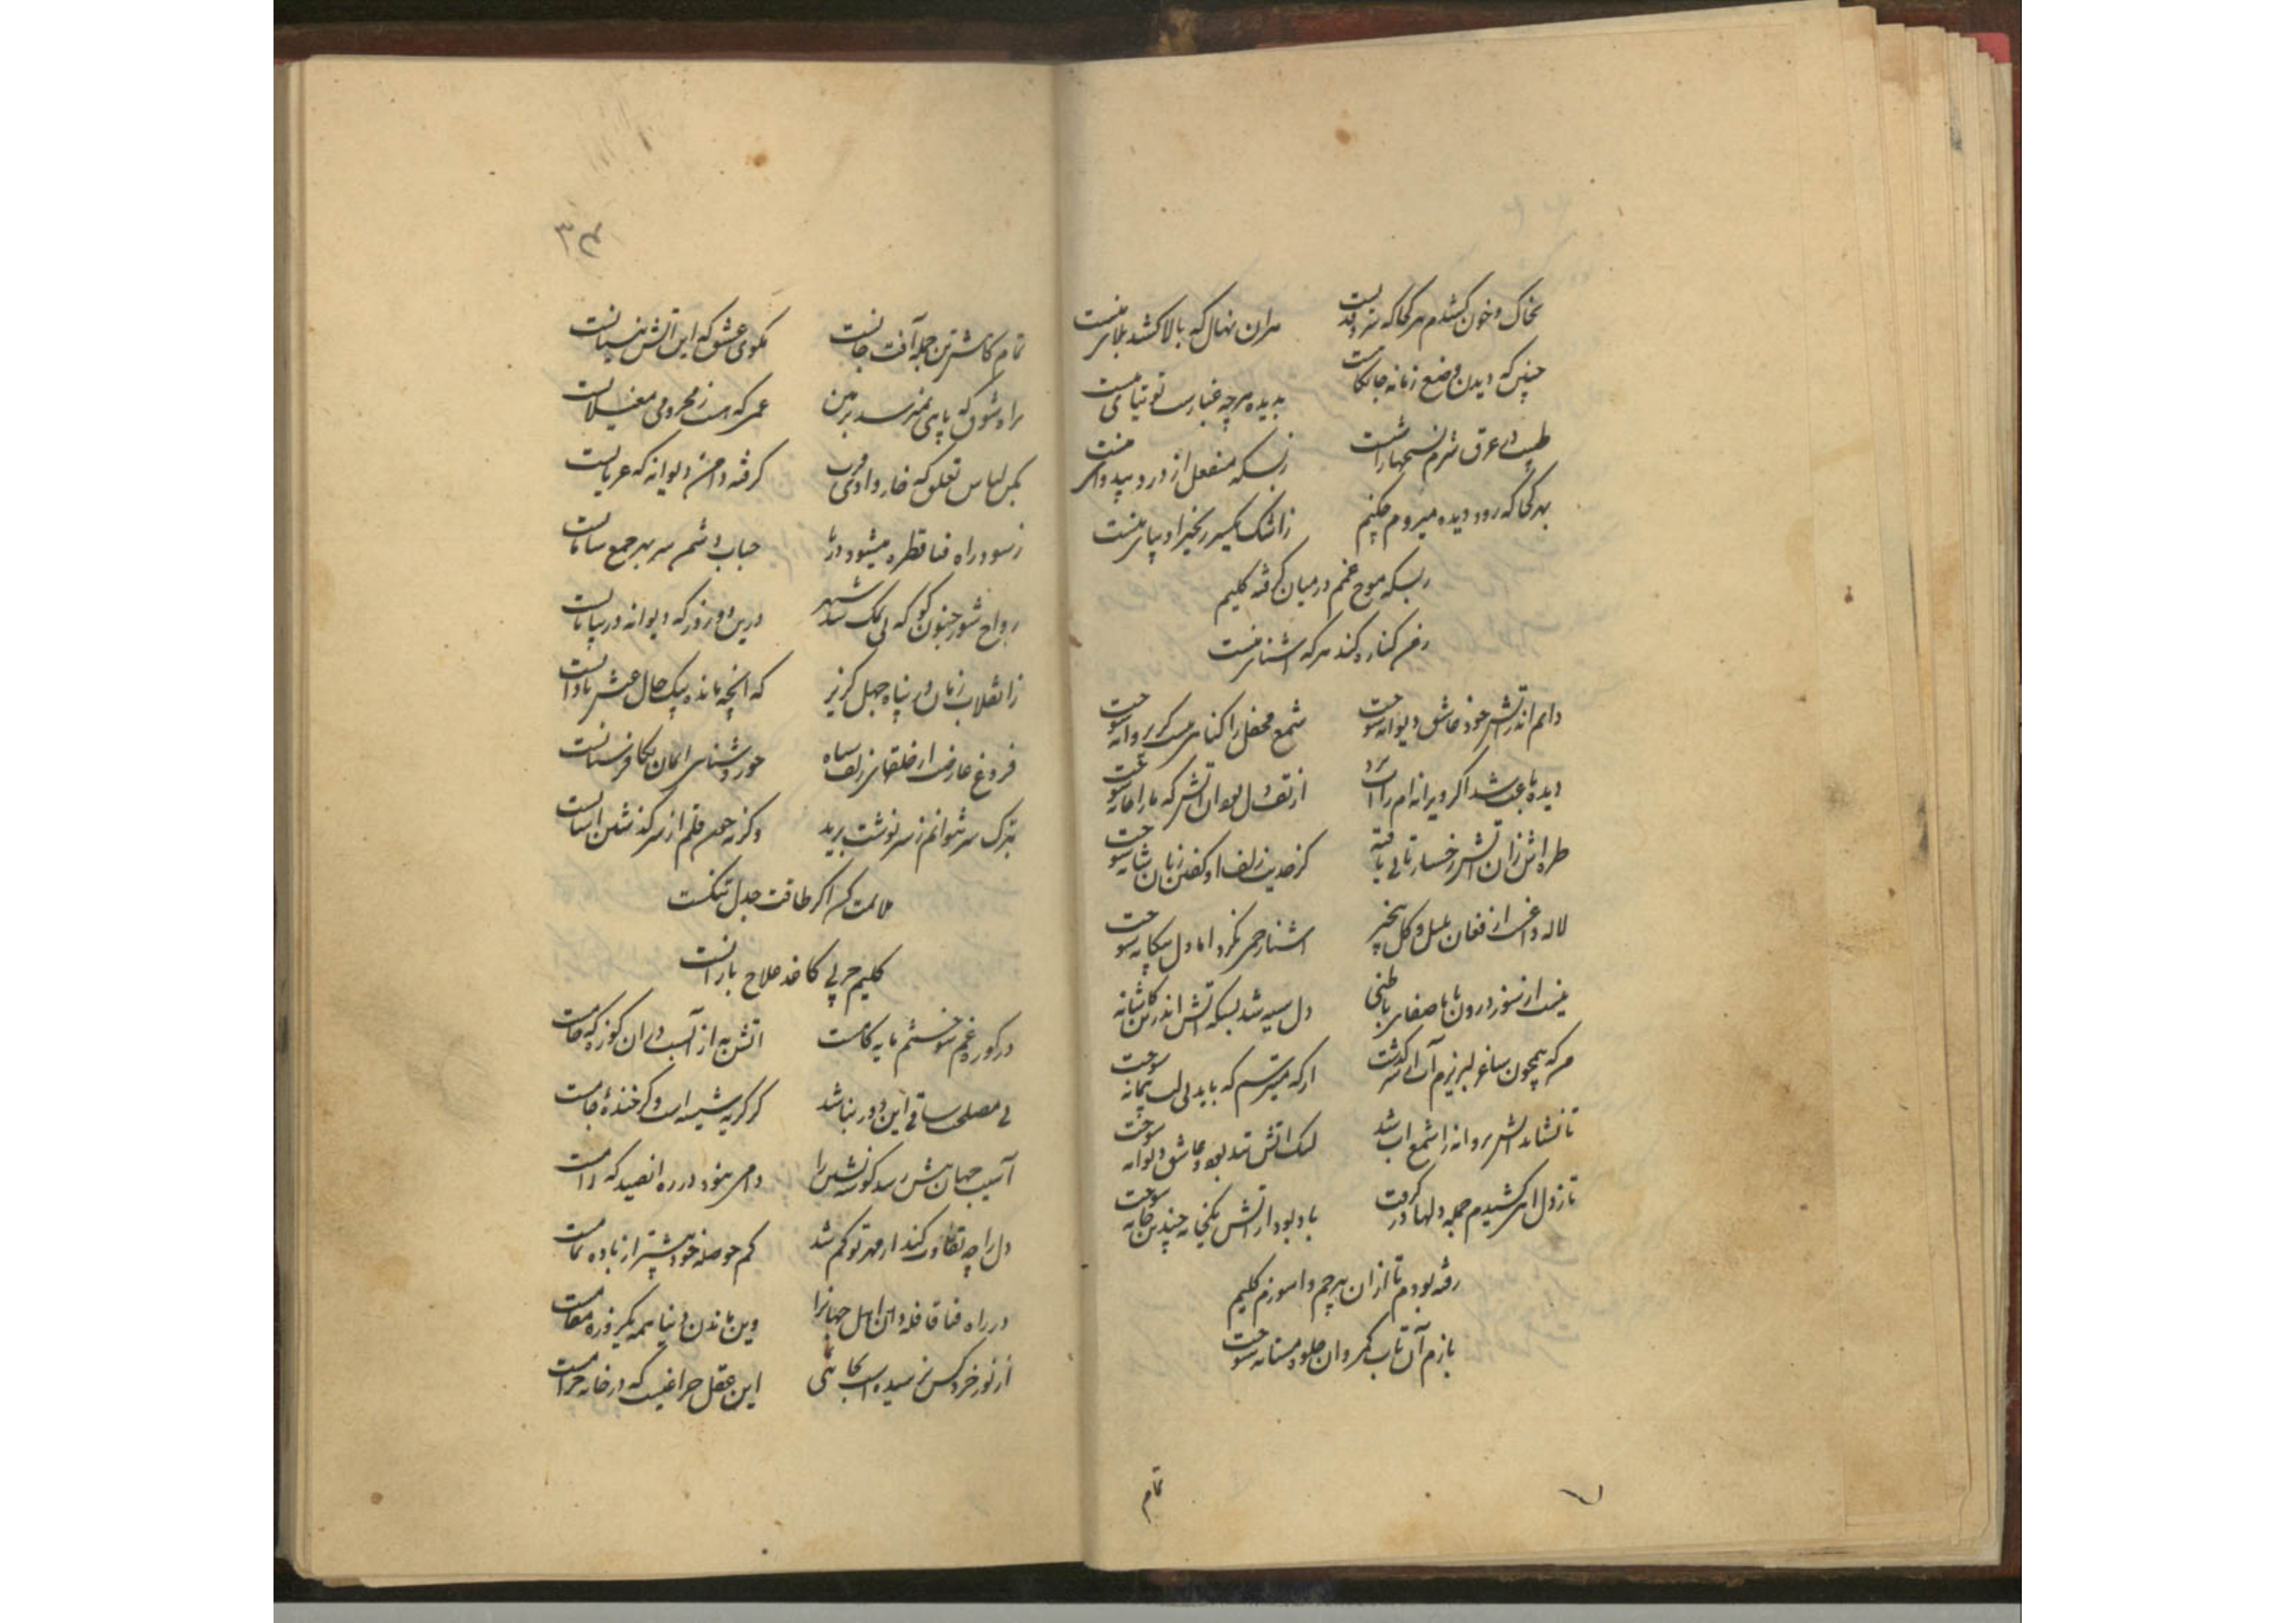 بخاک و خون کشدم هر کجا که سرو قدیست هران نهال که بالا کشد بلای منست
چنین که دیدن وضع زمانه جانکاهست بدیده هرچه غبارست توتیای منست
طبیب عرق شرم زبسکه منفعل از درد بیدوای منست
بهر کجا که رود دیده میروم چکنم ز اشک یکسر زنجیر او بپای منست
زبسکه موج غمم در میان گرفته کلیم
ز من کناره کند هر که آشنای منست
دایم اندر آتش خود عاشق دیوانه سوخت شمع محفل را گناهی نیست گر پروانه سوخت
دیده باعث شد اگر ویرانه‌ام را آب برد از تف دل بود آن آتش که ما را خانه سوخت
طره‌اش زان آتش رخسار تابی یافته کز حدیث زلف او گفتن زبان شانه سوخت
لاله داغست از فغان بلبل و گل بیخبر آشنا رحمی نکرد اما دل بیگانه سوخت
نیست از سوز درون ما را صفای باطنی دل سیه شد بسکه آتش اندرین کاشانه سوخت
هر که همچون ساغر لبریزم آب از سر گذشت از که میترسم که باید بی لب پیمانه سوخت
تا نشاند آتش پروانه را شمع آب شد لیک آتش تند بود و عاشق دیوانه سوخت
تا ز دل آهی کشیدم جمله دلها در گرفت باد بود از آتش یکخانه چندین خانه سوخت
رفته بودم تا از ان بیرحم واسوزم کلیم
بازم آن تاب کمر وان جلوه مستانه سوخت
تمام
۳۴
تمام کاش ترین جمله آفت جانست بکوی عشق که این آتش نیستانست
براه شوق که پا هم نمیرسد بزمین عمریکه هست ز محرومی مغیلانست
مکن لباس تعلق که خار وادی قرب گرفته دامن دیوانه که عریانست
ز سود راه فنا قطره میشود دریا حباب و شم سر بهر جمع سامانست
رواج شور جنون گو که بی نمک شد شهر درین دو روز که دیوانه در بیابانست
ز انقلاب زمان در پناه جهل گریز که آنچه مانده بیک حال عیش نادانست
فروغ عارضت از حلقهای زلف سیاه چو روشنایی ایمان بکافرستانست
بترک سر نتوانم ز سرنوشت برید وگرنه چون قلم از سر گذشتن آسانست
ملامت کن اگر طاقت جدل تنگست
کلیم حربی کاغذ سلاح بارانست
در کوره غم سوختنم مایه کامست آتش به از آبست در ان کوزه که خامست
بی مصلحت ساقی این دور نباشد گر گریه شیشه است وگر خنده جامست
آسیب جهان بیش رسد گوشه‌نشین را دامی نبود در ره آنصید که رامست
دل را چه تفاوت کند ار مهر تو کم شد کم حوصله خود بیشتر از باده تمامست
در راه فنا قافله دان اهل جهانرا وین ماندن دنیا همه یکروزه مقامست
از نور خرد کس نرسیده است بجائی این عقل چراغیست که در خانه حرامست